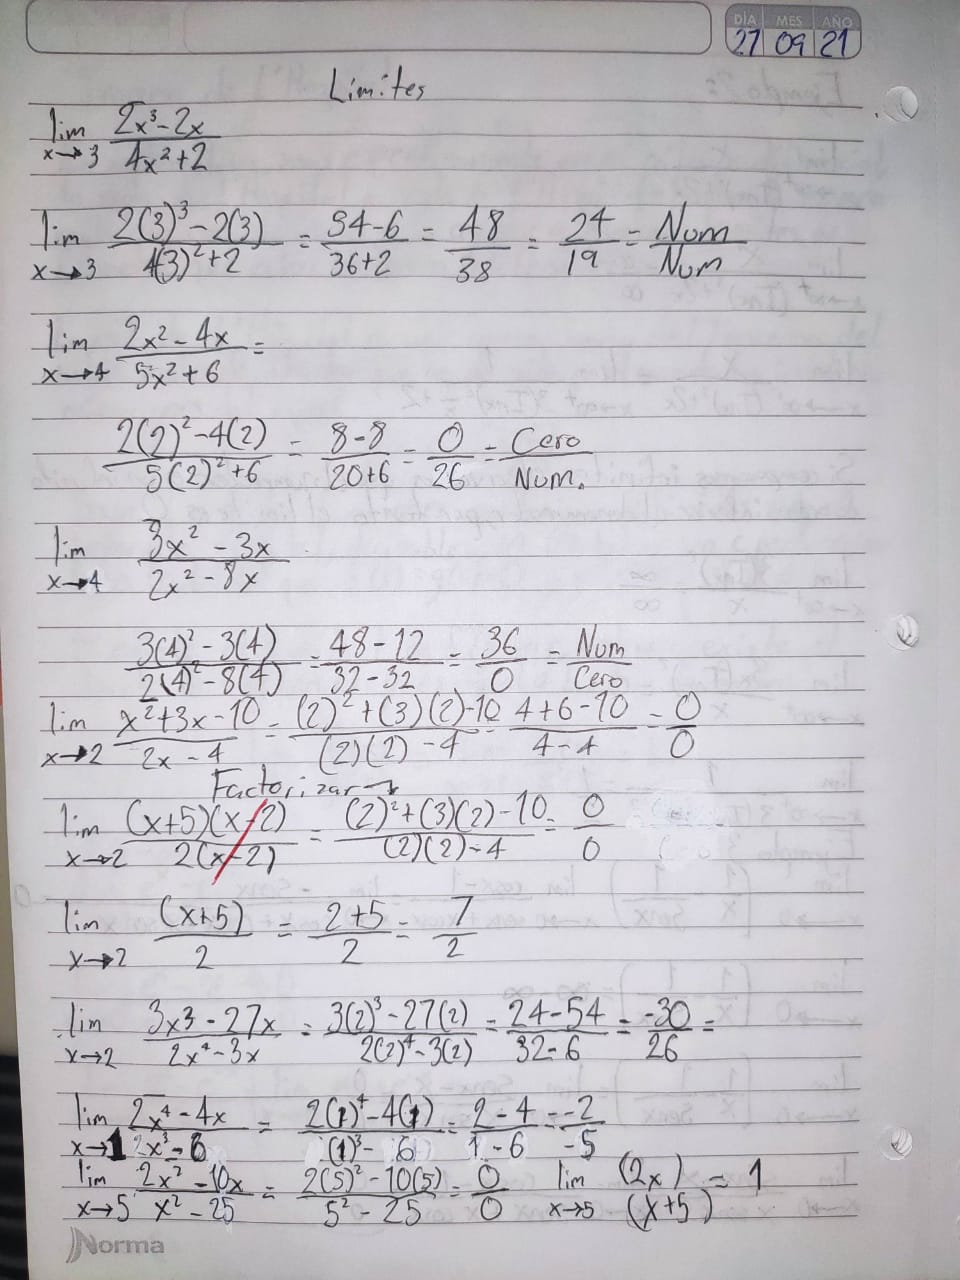 DÍA MES AÑO
27 09 21
Límites
lim x→3 (2x³-2x)/(4x²+2)
lim x→3 (2(3)³-2(3))/(4(3)²+2) = (54-6)/(36+2) = 48/38 = 24/19 = Num/Num
lim x→4 (2x²-4x)/(5x²+6) =
(2(2)²-4(2))/(5(2)²+6) = (8-8)/(20+6) = 0/26 = Cero/Num.
lim x→4 (3x²-3x)/(2x²-8x)
(3(4)²-3(4))/(2(4)²-8(4)) = (48-12)/(32-32) = 36/0 = Num/Cero
lim x→2 (x²+3x-10)/(2x-4) = ((2)²+(3)(2)-10)/((2)(2)-4) = (4+6-10)/(4-4) = 0/0
Factorizar
lim x→2 ((x+5)(x-2))/(2(x-2)) = ((2)²+(3)(2)-10)/((2)(2)-4) = 0/0
lim x→2 (x+5)/2 = (2+5)/2 = 7/2
lim x→2 (3x³-27x)/(2x⁴-3x) = (3(2)³-27(2))/(2(2)⁴-3(2)) = (24-54)/(32-6) = -30/26 =
lim x→1 (2x⁴-4x)/(2x³-6) = (2(1)⁴-4(1))/((1)³-6) = (2-4)/(1-6) = -2/-5
lim x→5 (2x²-10x)/(x²-25) = (2(5)²-10(5))/(5²-25) = 0/0 lim x→5 (2x)/(x+5) = 1
Norma